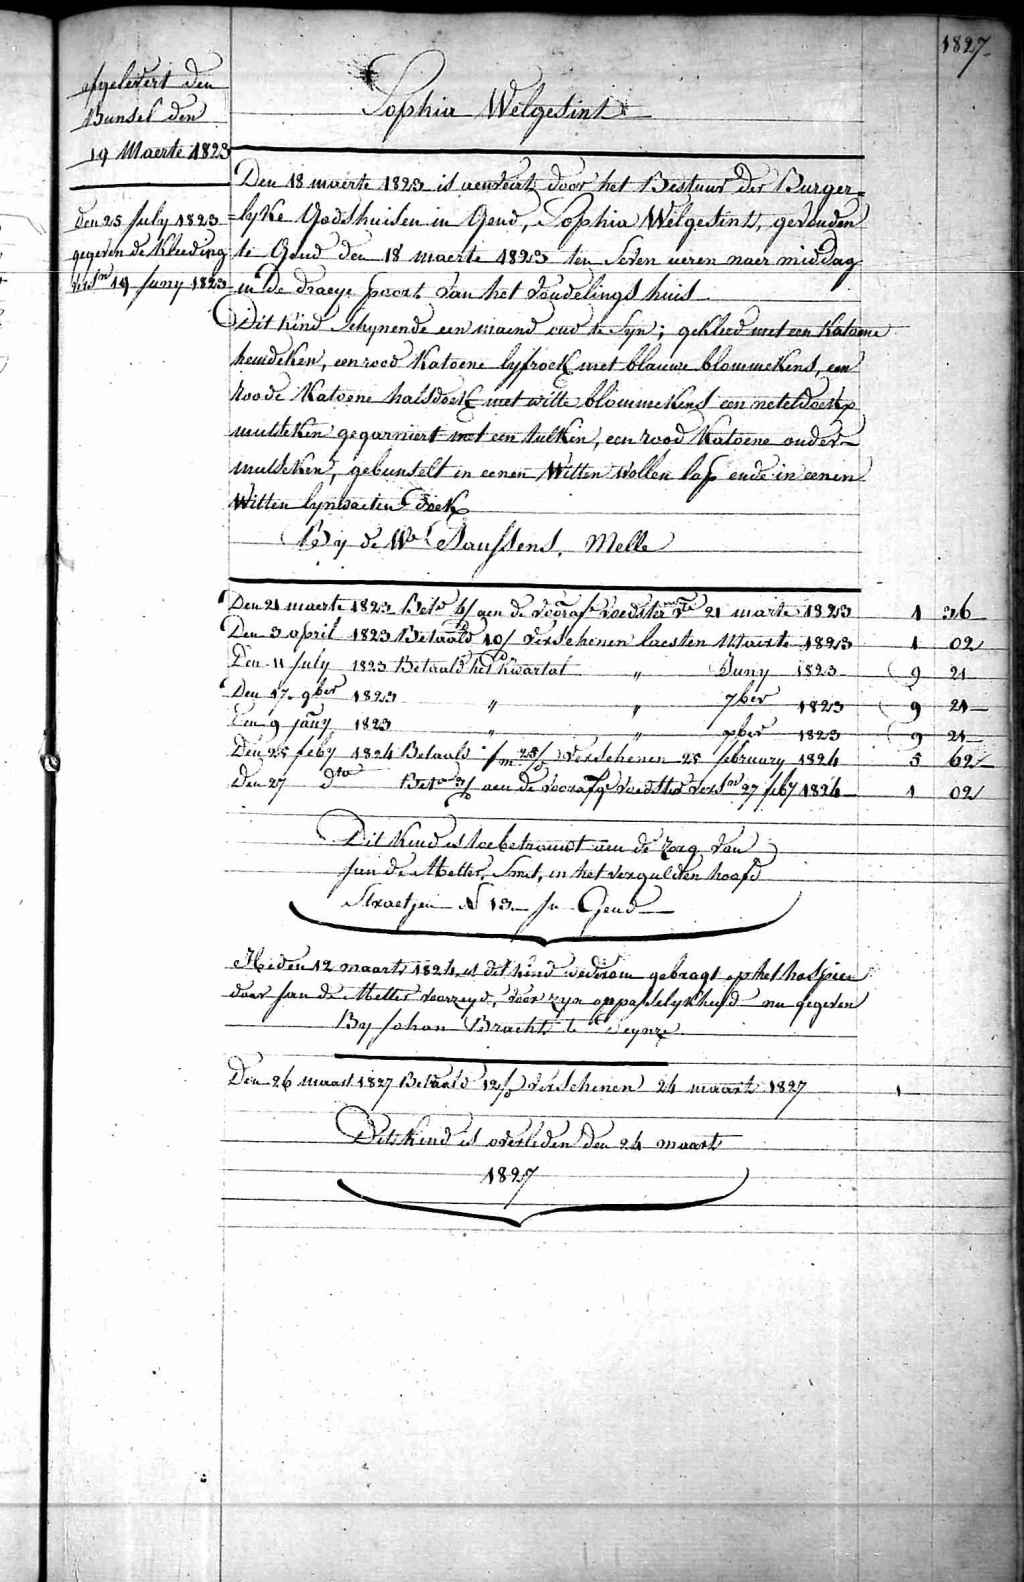 1827
afgelevert den
Bunsel den
19 Maerte 1823
den 25 July 1823
gegeven de Kleeding
versn 19 Juny 1823
Sophia Welgesint
Den 18 maerte 1823 is aenveert door het Bestuur der Burger-
lyke Godshuisen in Gend, Sophia Welgesint, gevonden
te Gend den 18 maerte 1823 ten seven ueren naer middag
in de draeye poort van het vondelings huis
Dit kind schynende een maend oud te syn; gekleed met een Katoene
hemdeken, een rood Katoene lyfrock met blauwe blommekens, een
roode Katoene halsdoek met witte blommekens een neteldoeks
mutseken gegarniert met een tulken, een rood Katoene onder-
mutseken, gebunselt in eenen Witten Wollen lap ende in eenen
Witten lynwaeten doek
By de We Janssens, Melle
Den 21 maerte 1823 Beto aen de voorafe voedster 21 marte 1823 1 36
Den 3 april 1823 Betaald 10/ verschenen laesten Maerte 1823 1 02
Den 11 July 1823 Betaald het Kwartal " Juny 1823 9 21
Den 17 9ber 1823 " " 7ber 1823 9 21
Den 9 Jany 1823 " " 9ber 1823 9 21
Den 25 feby 1824 Betaald verschenen 25 february 1824 5 62
Den 27 dto Beto aen de voorafge voedster versn 27 feby 1824 1 02
Dit kind is toebetrouwt aen de zorg van
Jan de Metter, Smet, in het vergulden hoofd
Straetjen N 13 in Gend
Heden 12 maarts 1824 is dit kind wederom gebragt op het hospice
door Jan de Metter voorzeyd, voor zyn oppasselykheyd nu gegeven
By Johan Bracht te Deynze
Den 26 maart 1827 Betaald 12/ verschenen 24 maart 1827 1
Dit kind is overleden den 24 maart
1827